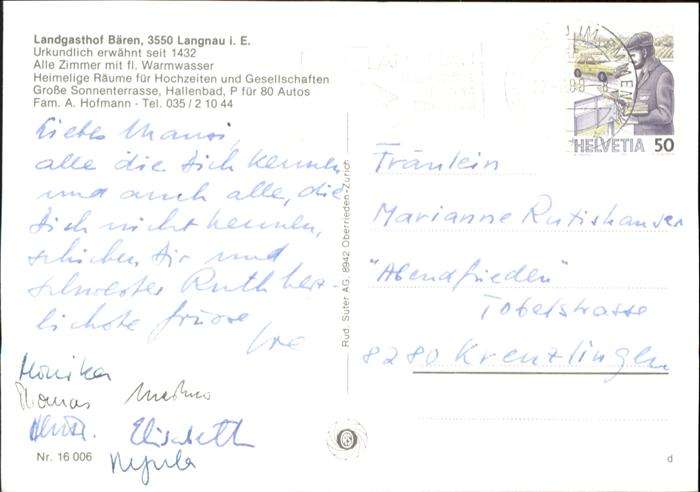 Landgasthof Bären, 3550 Langnau i. E.
Urkundlich erwähnt seit 1432
Alle Zimmer mit fl. Warmwasser
Heimelige Räume für Hochzeiten und Gesellschaften
Große Sonnenterrasse, Hallenbad, P für 80 Autos
Fam. A. Hofmann - Tel. 035 / 2 10 44
Liebes Manni,
alle die Dich kennen
und auch alle, die
Dich nicht kennen,
schicken Dir und
Schwester Ruth herz-
lichste Grüsse
Monika
Thomas
Elisabeth
Nr. 16 006
Rud. Suter AG, 8942 Oberrieden-Zürich
HELVETIA 50
Fräulein
Marianne Rutishauser
"Abendfrieden"
Tobelstrasse
8280 Kreuzlingen
d